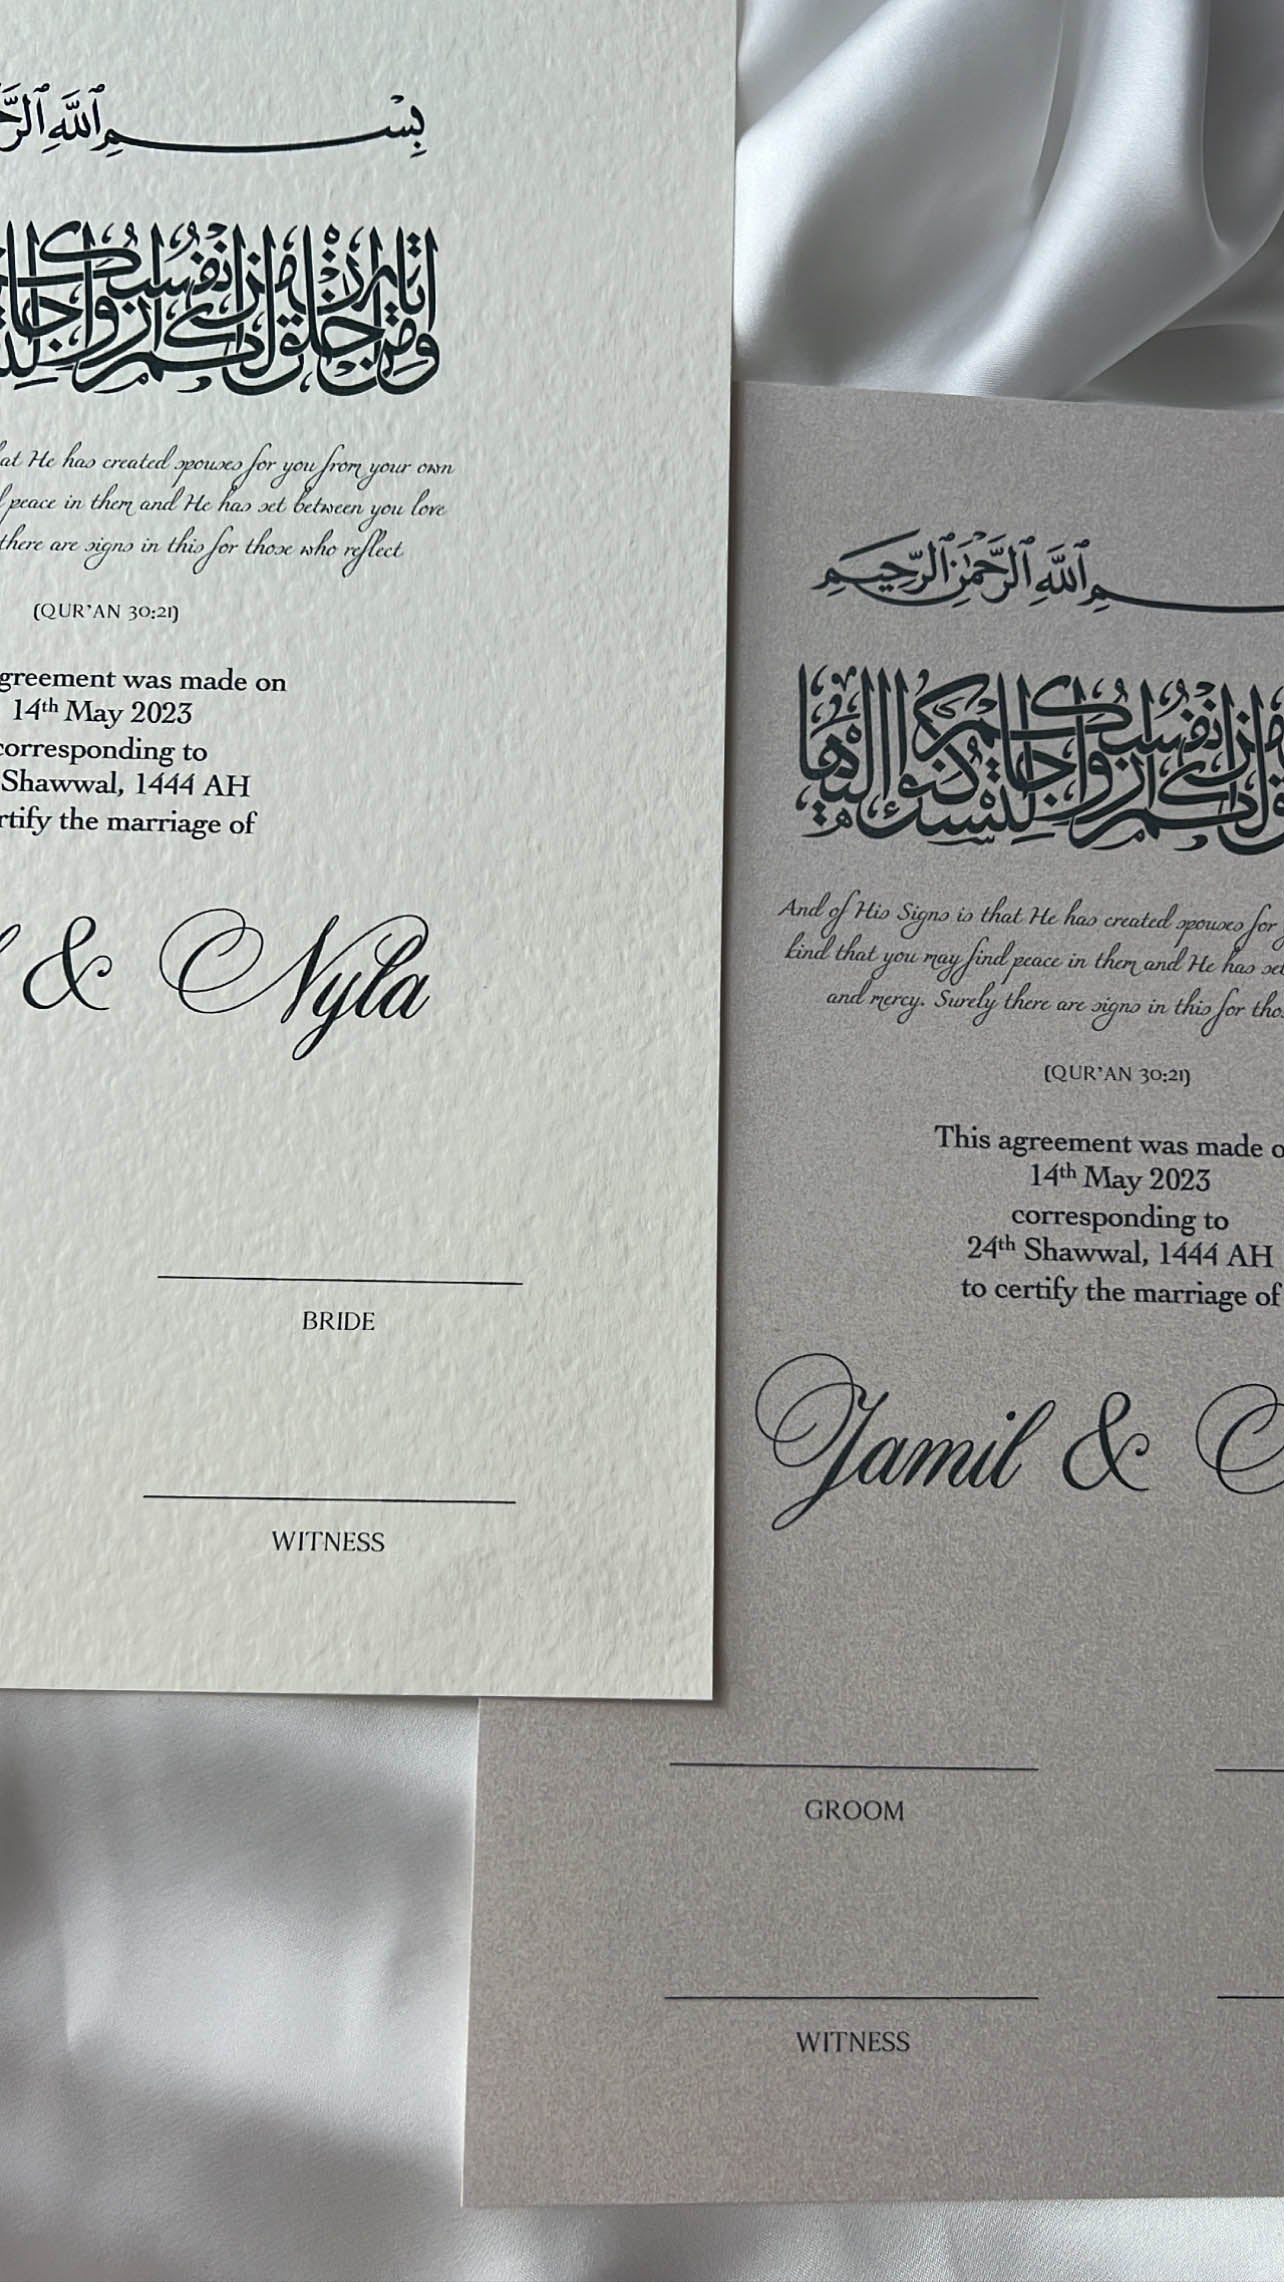 بِسْمِ ٱللَّهِ
ومن اياته ان خلق لكم من انفسكم ازواجا
at He has created spouses for you from your own
peace in them and He has set between you love
there are signs in this for those who reflect
(QUR'AN 30:21)
greement was made on
14th May 2023
corresponding to
Shawwal, 1444 AH
rtify the marriage of
& Nyla
BRIDE
WITNESS
ـمِ ٱللَّهِ ٱلرَّحْمَٰنِ ٱلرَّحِيمِ
من انفسكم ازواجا لتسكنوا اليها
And of His Signs is that He has created spouses for
kind that you may find peace in them and He has set
and mercy. Surely there are signs in this for tho
(QUR'AN 30:21)
This agreement was made o
14th May 2023
corresponding to
24th Shawwal, 1444 AH
to certify the marriage of
Jamil &
GROOM
WITNESS